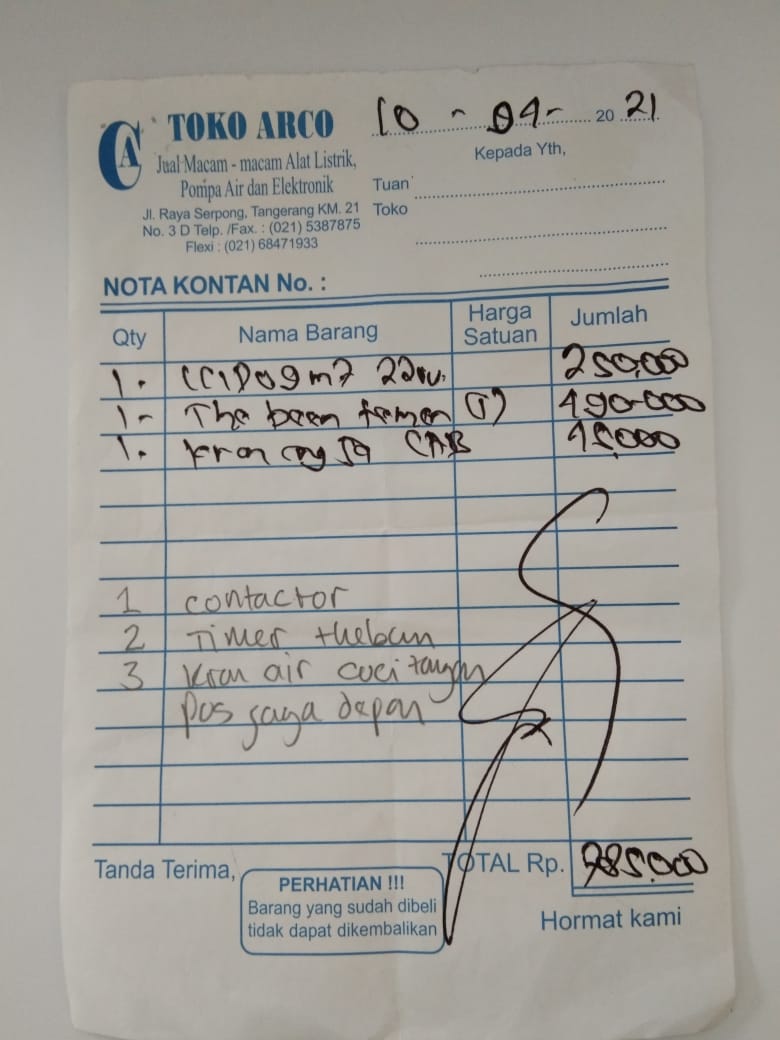 CA TOKO ARCO
Jual Macam - macam Alat Listrik,
Pompa Air dan Elektronik
Jl. Raya Serpong, Tangerang KM. 21
No. 3 D Telp. /Fax. : (021) 5387875
Flexi : (021) 68471933
10 - 04 - 20 21
Kepada Yth,
Tuan
Toko
NOTA KONTAN No. :
Qty Nama Barang Harga Satuan Jumlah
1. 220v. 250.000
1- 490.000
1. kran 45.000
1 contactor
2 Timer theben
3 kran air cuci tangan
pos jaga depan
Tanda Terima, TOTAL Rp. 785.000
PERHATIAN !!!
Barang yang sudah dibeli
tidak dapat dikembalikan
Hormat kami